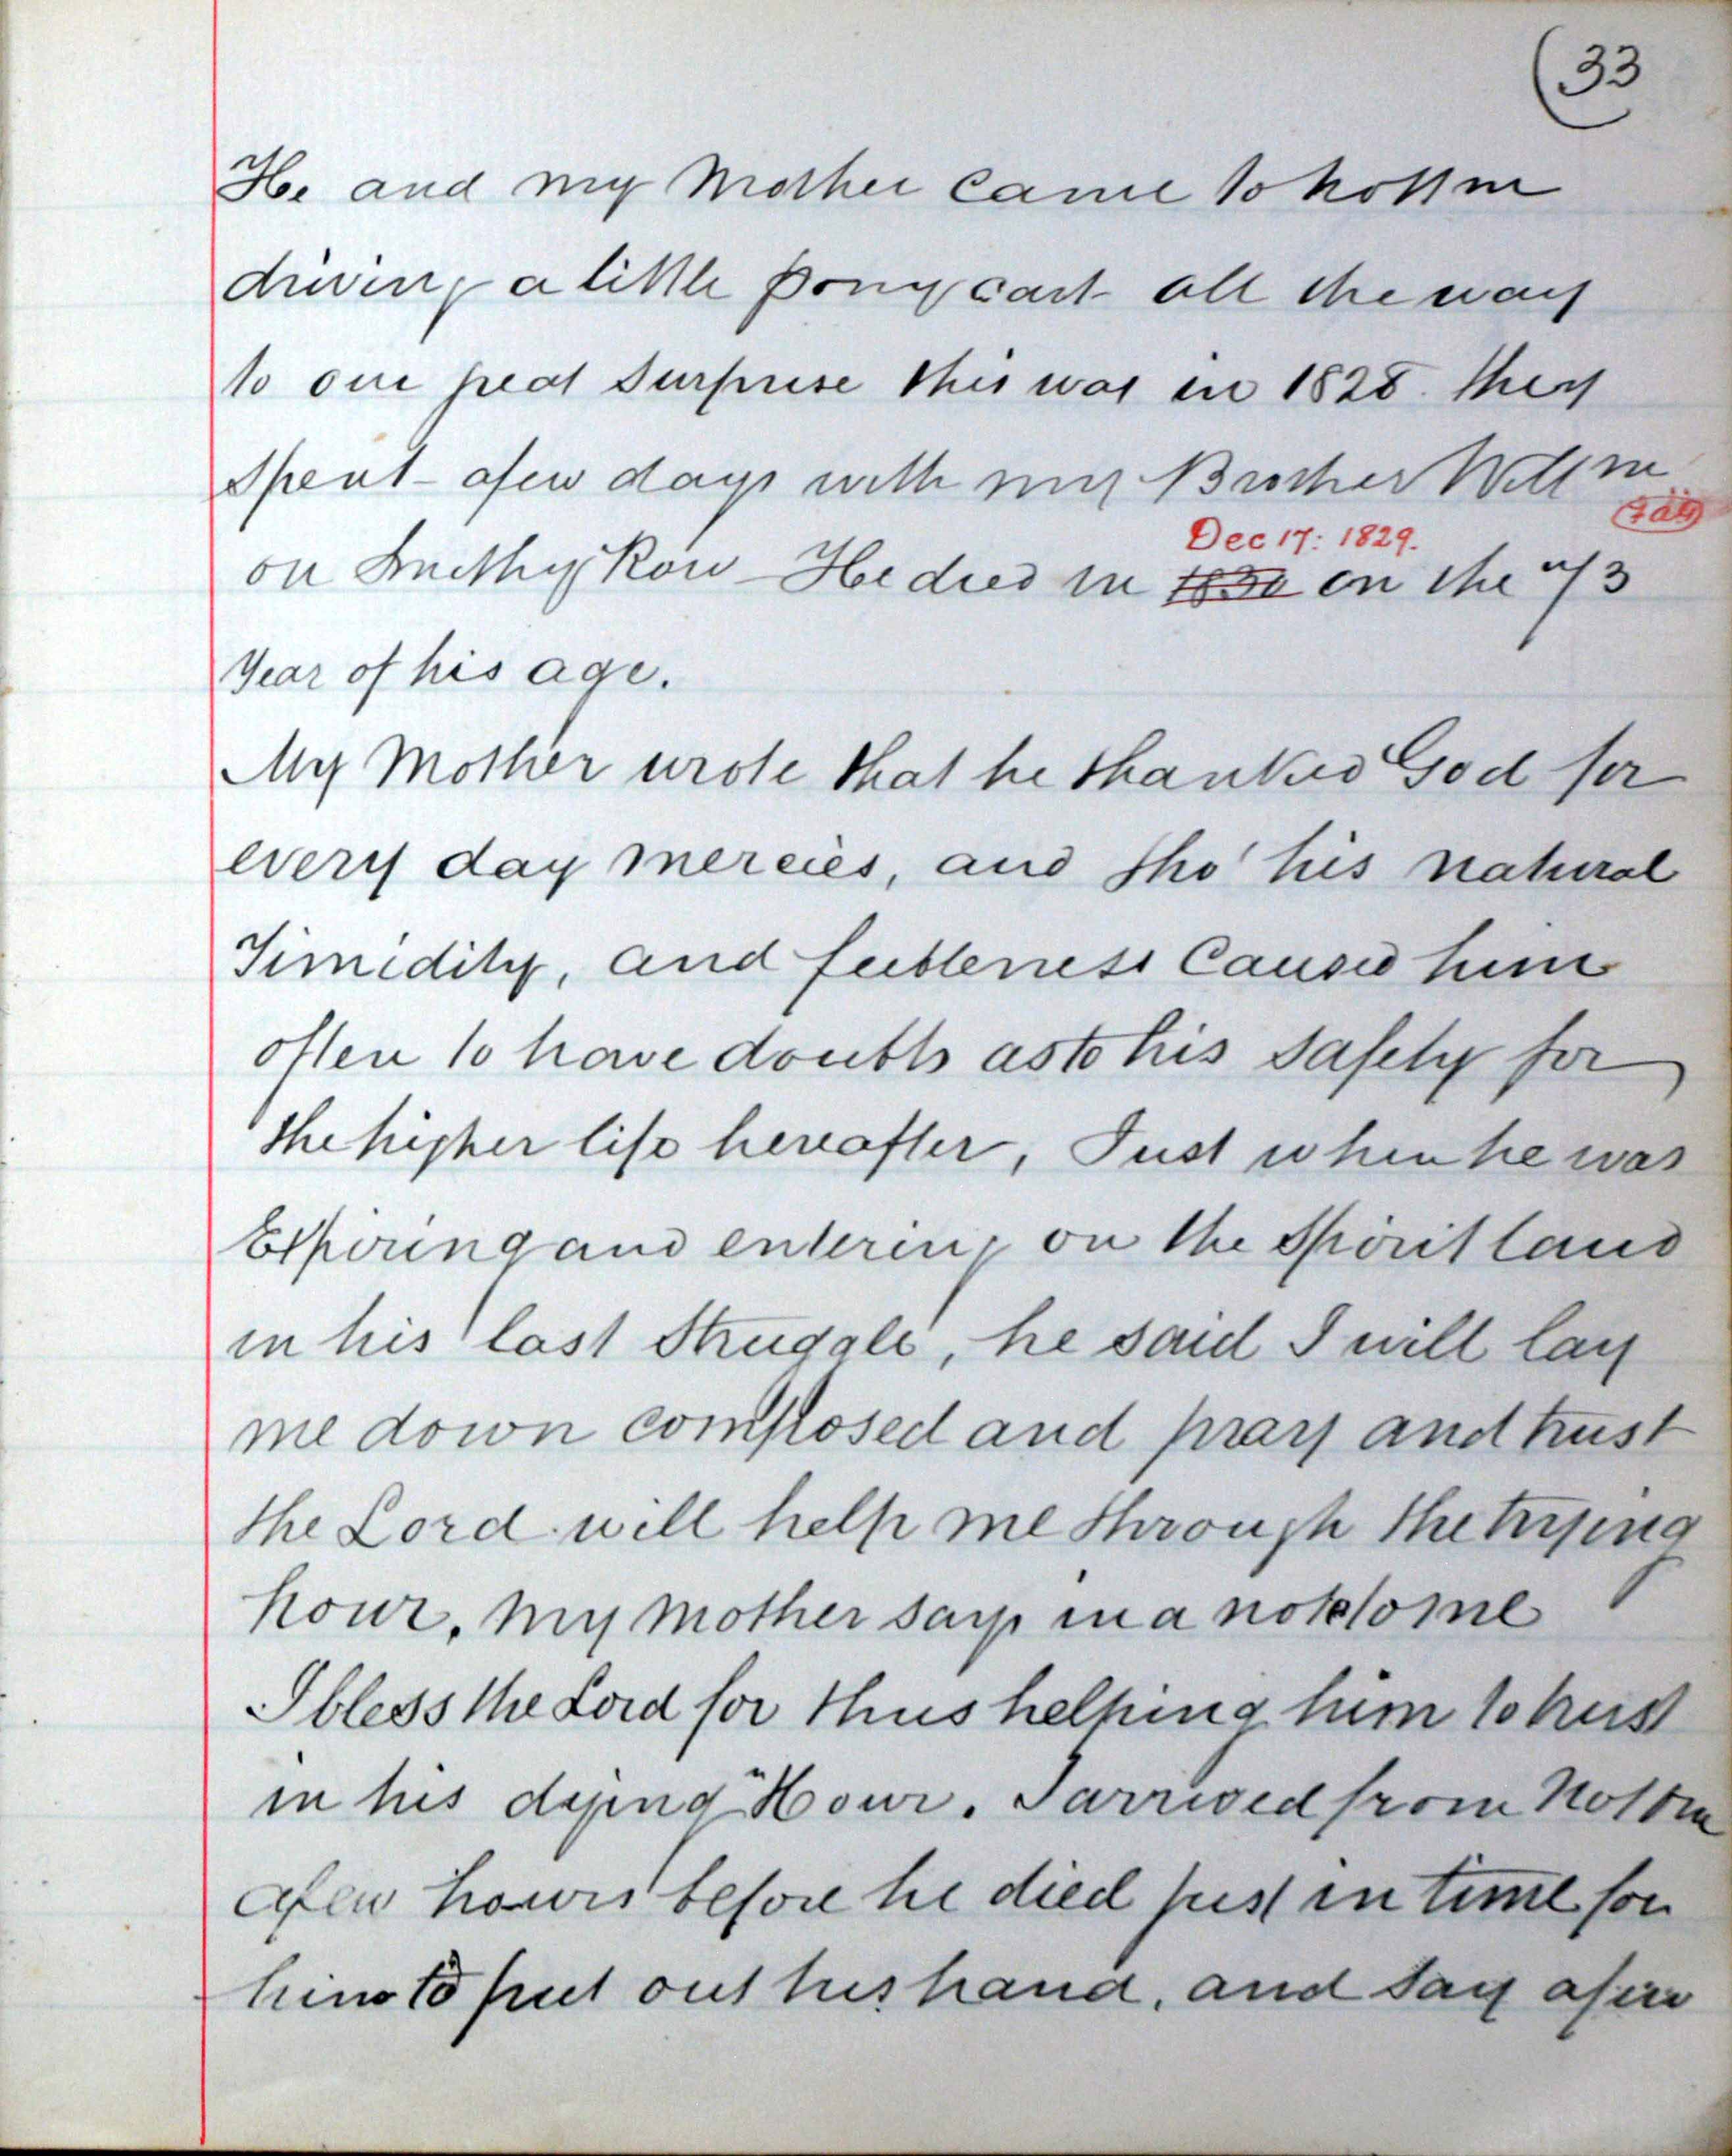 (33
He and my Mother came to Nottm
driving a little pony cart all the way
to our great surprise this was in 1828. they
spent a few days with my Brother Willm
on Smithy Row - He died in 1830 on the 73
Dec 17: 1829.
Year of his age.
My Mother wrote that he thanked God for
every day mercies, and tho' his natural
Timidity, and feebleness Caused him
often to have doubts as to his safety for
the higher life hereafter, Just when he was
Expiring and entering on the Spirit land
in his last Struggle, he said I will lay
me down composed and pray and trust
the Lord will help me through the trying
hour, my mother says in a note to me
I bless the Lord for thus helping him to trust
in his dying Hour. I arrived from Nottm
a few hours before he died just in time for
him to put out his hand, and say a few